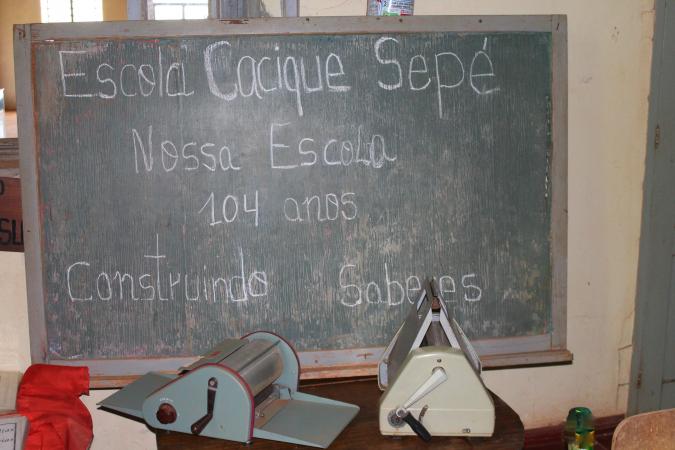 Escola Cacique Sepé
Nossa Escola
104 anos
Construindo Saberes